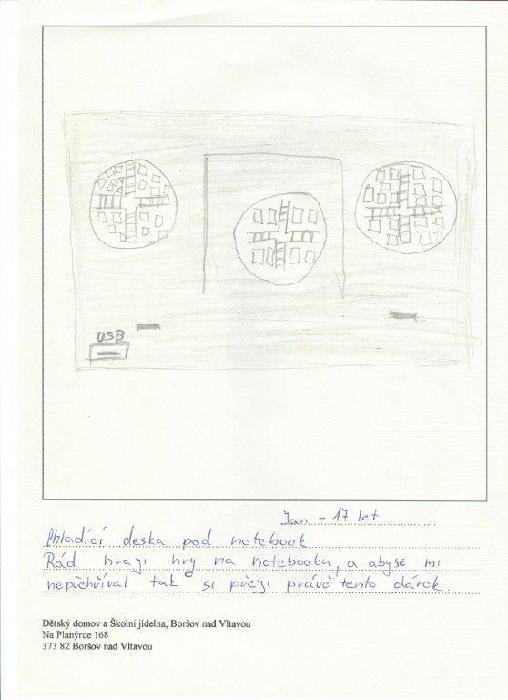 USB
Jan - 17 let
Chladící deska pod notebook
Rád hraji hry na notebooku, a abyse mi
nepřehříval tak si přeji právě tento dárek
Dětský domov a Školní jídelna, Boršov nad Vltavou
Na Planýrce 168
373 82 Boršov nad Vltavou